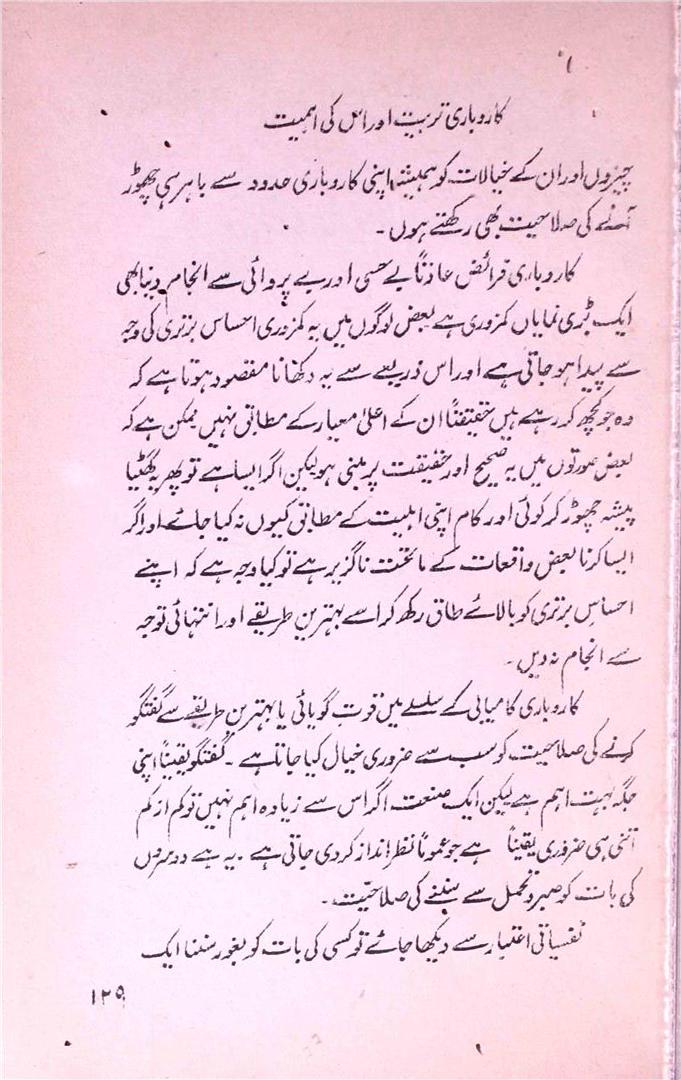 کاروباری تربیت اور اس کی اہمیت
چیزوں اور ان کے خیالات کو ہمیشہ اپنی کاروباری حدود سے باہر ہی چھوڑ
آنے کی صلاحیت بھی رکھتے ہوں۔
کاروباری فرائض عادتاً بے حسی اور بے پروائی سے انجام دینا بھی
ایک بڑی نمایاں کمزوری ہے بعض لوگوں میں یہ کمزوری احساس برتری کی وجہ
سے پیدا ہو جاتی ہے اور اس ذریعے سے یہ دکھانا مقصود ہوتا ہے کہ
وہ جو کچھ کر رہے ہیں حقیقتاً ان کے اعلیٰ معیار کے مطابق نہیں ممکن ہے کہ
بعض صورتوں میں یہ صحیح اور حقیقت پر مبنی ہو لیکن اگر ایسا ہے تو پھر یہ گھٹیا
پیشہ چھوڑ کر کوئی اور کام اپنی اہلیت کے مطابق کیوں نہ کیا جائے اور اگر
ایسا کرنا بعض واقعات کے ماتحت ناگزیر ہے تو کیا وجہ ہے کہ اپنے
احساسِ برتری کو بالائے طاق رکھ کر اسے بہترین طریقے اور انتہائی توجہ
سے انجام نہ دیں۔
کاروباری کامیابی کے سلسلے میں قوت گویائی یا بہترین طریقے سے گفتگو
کرنے کی صلاحیت کو سب سے ضروری خیال کیا جاتا ہے۔ گفتگو یقیناً اپنی
جگہ بہت اہم ہے لیکن ایک صنعت اگر اس سے زیادہ اہم نہیں تو کم از کم
اتنی ہی ضروری یقیناً ہے جو عموماً نظر انداز کر دی جاتی ہے۔ یہ ہے دوسروں
کی بات کو صبر و تحمل سے سننے کی صلاحیت۔
نفسیاتی اعتبار سے دیکھا جائے تو کسی کی بات کو بغور سننا ایک
۱۲۵